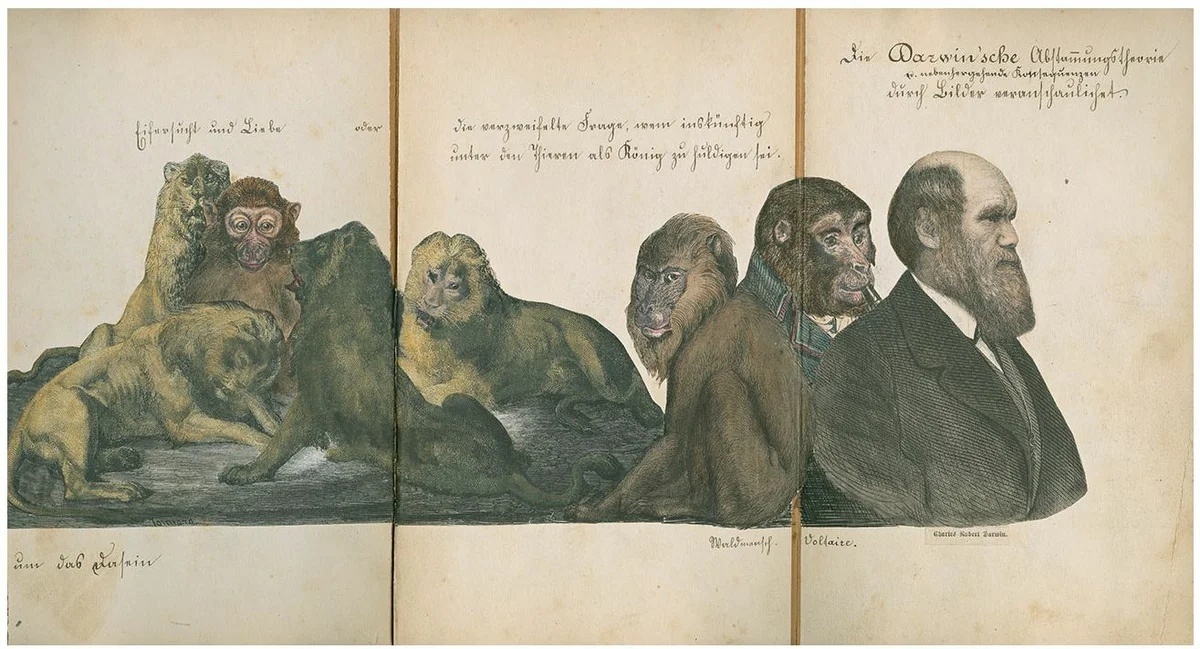 Die Darwin'sche Abstam̅ungstheorie
u. nebenhergehende Konsequenzen
durch Bilder veranschaulichet.
Eifersucht und Liebe oder
die verzweifelte Frage, wem inskünftig
unter den Thieren als König zu huldigen sei.
Waldmensch. Voltaire.
Charles Robert Darwin.
um das Dasein